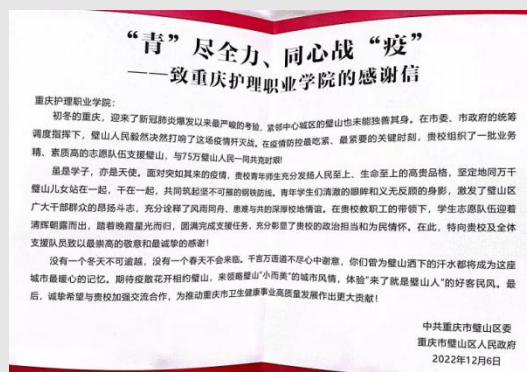 “青”尽全力、同心战“疫”
——致重庆护理职业学院的感谢信
重庆护理职业学院：
初冬的重庆，迎来了新冠肺炎爆发以来最严峻的考验，紧邻中心城区的璧山也未能独善其身。在市委、市政府的统筹
调度指挥下，璧山人民毅然决然打响了这场疫情歼灭战。在疫情防控最吃紧、最紧要的关键时刻，贵校组织了一批业务
精、素质高的志愿队伍支援璧山，与75万璧山人民一同共克时艰!
虽是学子，亦是天使。面对突如其来的疫情，贵校青年师生充分发扬人民至上、生命至上的高贵品格，坚定地同万千
璧山儿女站在一起，干在一起，共同筑起坚不可摧的钢铁防线。青年学生们清澈的眼眸和义无反顾的身影，激发了璧山区
广大干部群众的昂扬斗志，充分诠释了风雨同舟、患难与共的深厚校地情谊。在贵校教职工的带领下，学生志愿队伍迎着
清辉朝露而出，踏着晚霞星光而归，圆满完成支援任务，充分彰显了贵校的政治担当和为民情怀。在此，特向贵校及全体
支援队员致以最崇高的敬意和最诚挚的感谢!
没有一个冬天不可逾越，没有一个春天不会来临。千言万语道不尽心中谢意，你们曾为璧山洒下的汗水都将成为这座
城市最暖心的记忆。期待疫散花开相约璧山，来领略璧山“小而美”的城市风情，体验“来了就是璧山人”的好客民风。最
后，诚挚希望与贵校加强交流合作，为推动重庆市卫生健康事业高质量发展作出更大贡献!
中共重庆市璧山区委
重庆市璧山区人民政府
2022年12月6日